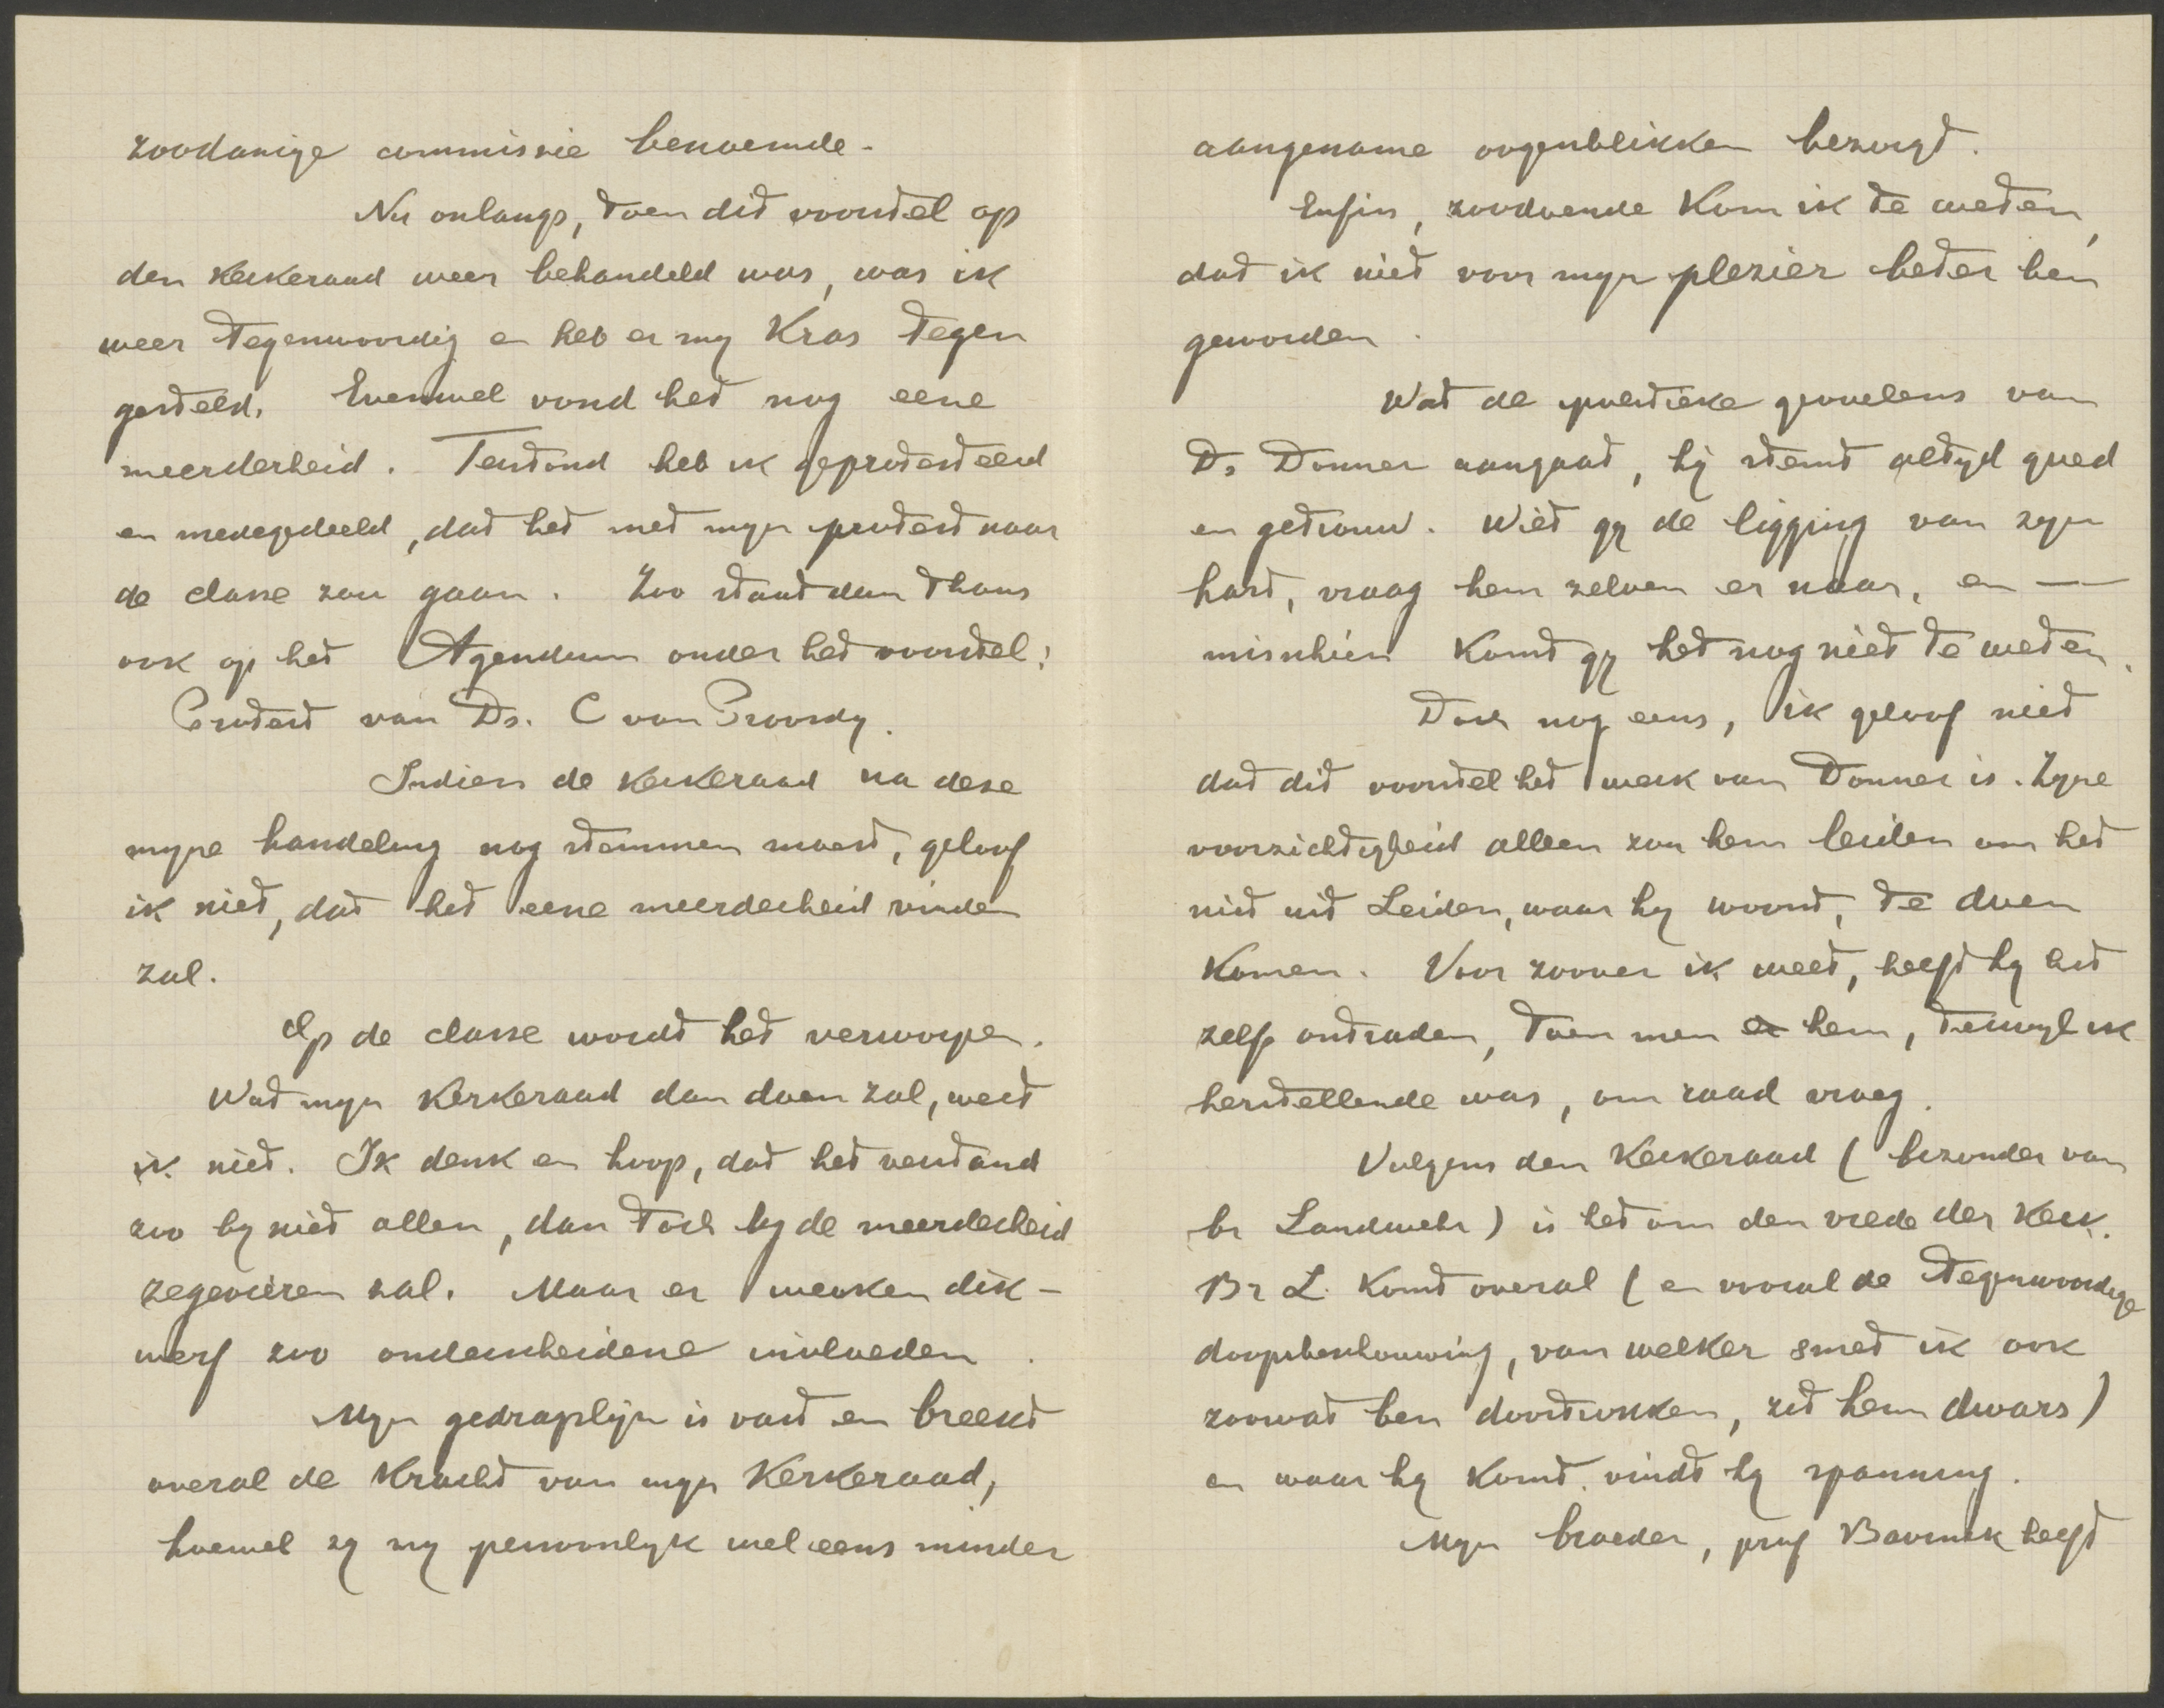 zoodanige commissie benoemde.
Nu onlangs, toen dit voorstel op
den kerkeraad weer behandeld was, was ik
weer tegenwoordig en heb er my kras tegen
gesteld. Evenwel vond het nog eene
meerderheid. Terstond heb ik geprotesteerd
en medegedeeld, dat het met myn protest naar
de classe zou gaan. Zoo staat dan thans
ook op het Agendum onder het voorstel:
Protest van Ds. C van Proosdy.
Indien de kerkeraad na deze
myne handeling nog stemmen moest, geloof
ik niet, dat het eene meerderheid vinden
zal.
Op de classe wordt het verworpen.
Wat myn kerkeraad dan doen zal, weet
ik niet. Ik denk en hoop, dat het verstand
zoo by niet allen, dan toch by de meerderheid
zegevieren zal. Maar er werken dik-
werf zoo onderscheidene invloeden.
Myn gedragslijn is vast en breekt
overal de kracht van myn kerkeraad,
hoewel zy my persoonlyk wel eens minder
aangename oogenblikken bezorgt.
Enfin, zoodoende kom ik te weten,
dat ik niet voor myn plezier beter ben
geworden.
Wat de politieke gevoelens van
Ds Donner aangaat, hij stemt altyd goed
en getrouw. Wilt gy de ligging van zyn
hart, vraag hem zelven er naar, en —
misschien komt gy het nog niet te weten.
Doch nog eens, ik geloof niet
dat dit voorstel het werk van Donner is. Zyne
voorzichtigheid alleen zou hem leiden om het
niet uit Leiden, waar hy woont, te doen
komen. Voor zoover ik weet, heeft hy het
zelfs ontraden, toen men er hem, terwyl ik
herstellende was, om raad vroeg.
Volgens den kerkeraad (bezonder van
br Landwehr) is het om den vrede der kerk.
Br L. komt overal (en vooral de tegenwoordige
doopsbeschouwing, van welker smet ik ook
zoowat ben doortrokken, zit hem dwars)
en waar hy komt, vindt hy spanning.
Myn broeder, prof Bavinck heeft